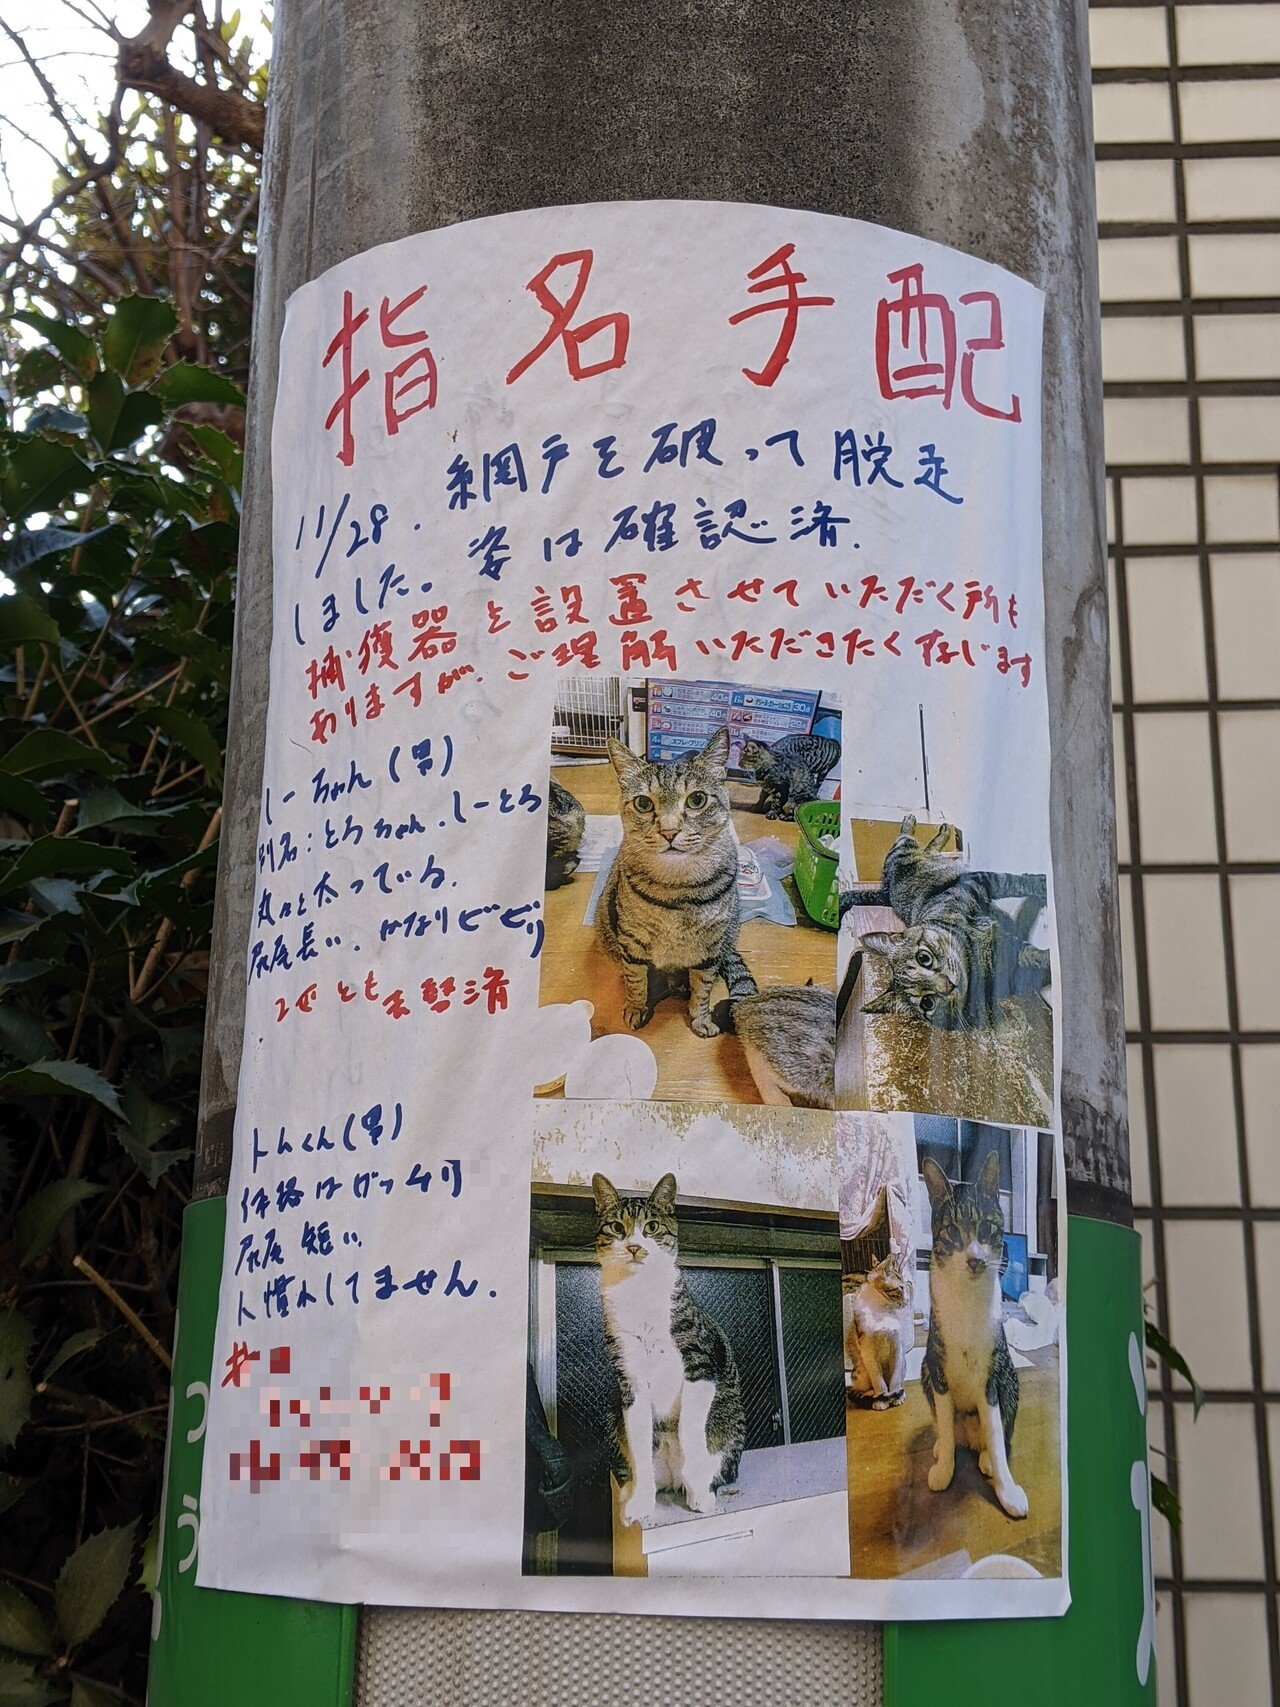 指名手配
11/28. 網戸を破って脱走
しました。姿は確認済.
捕獲器を設置させていただく所も
ありますが、ご理解いただきたく存じます
しーちゃん(男)
別名:とろちゃん.しーとろ
丸々と太っている.
尻尾長い、かなりビビリ
2匹とも去勢済
トムくん(男)
体格はガッチリ
尻尾短い
人慣れしてません.
40点
30点
40点
29点
つ
う